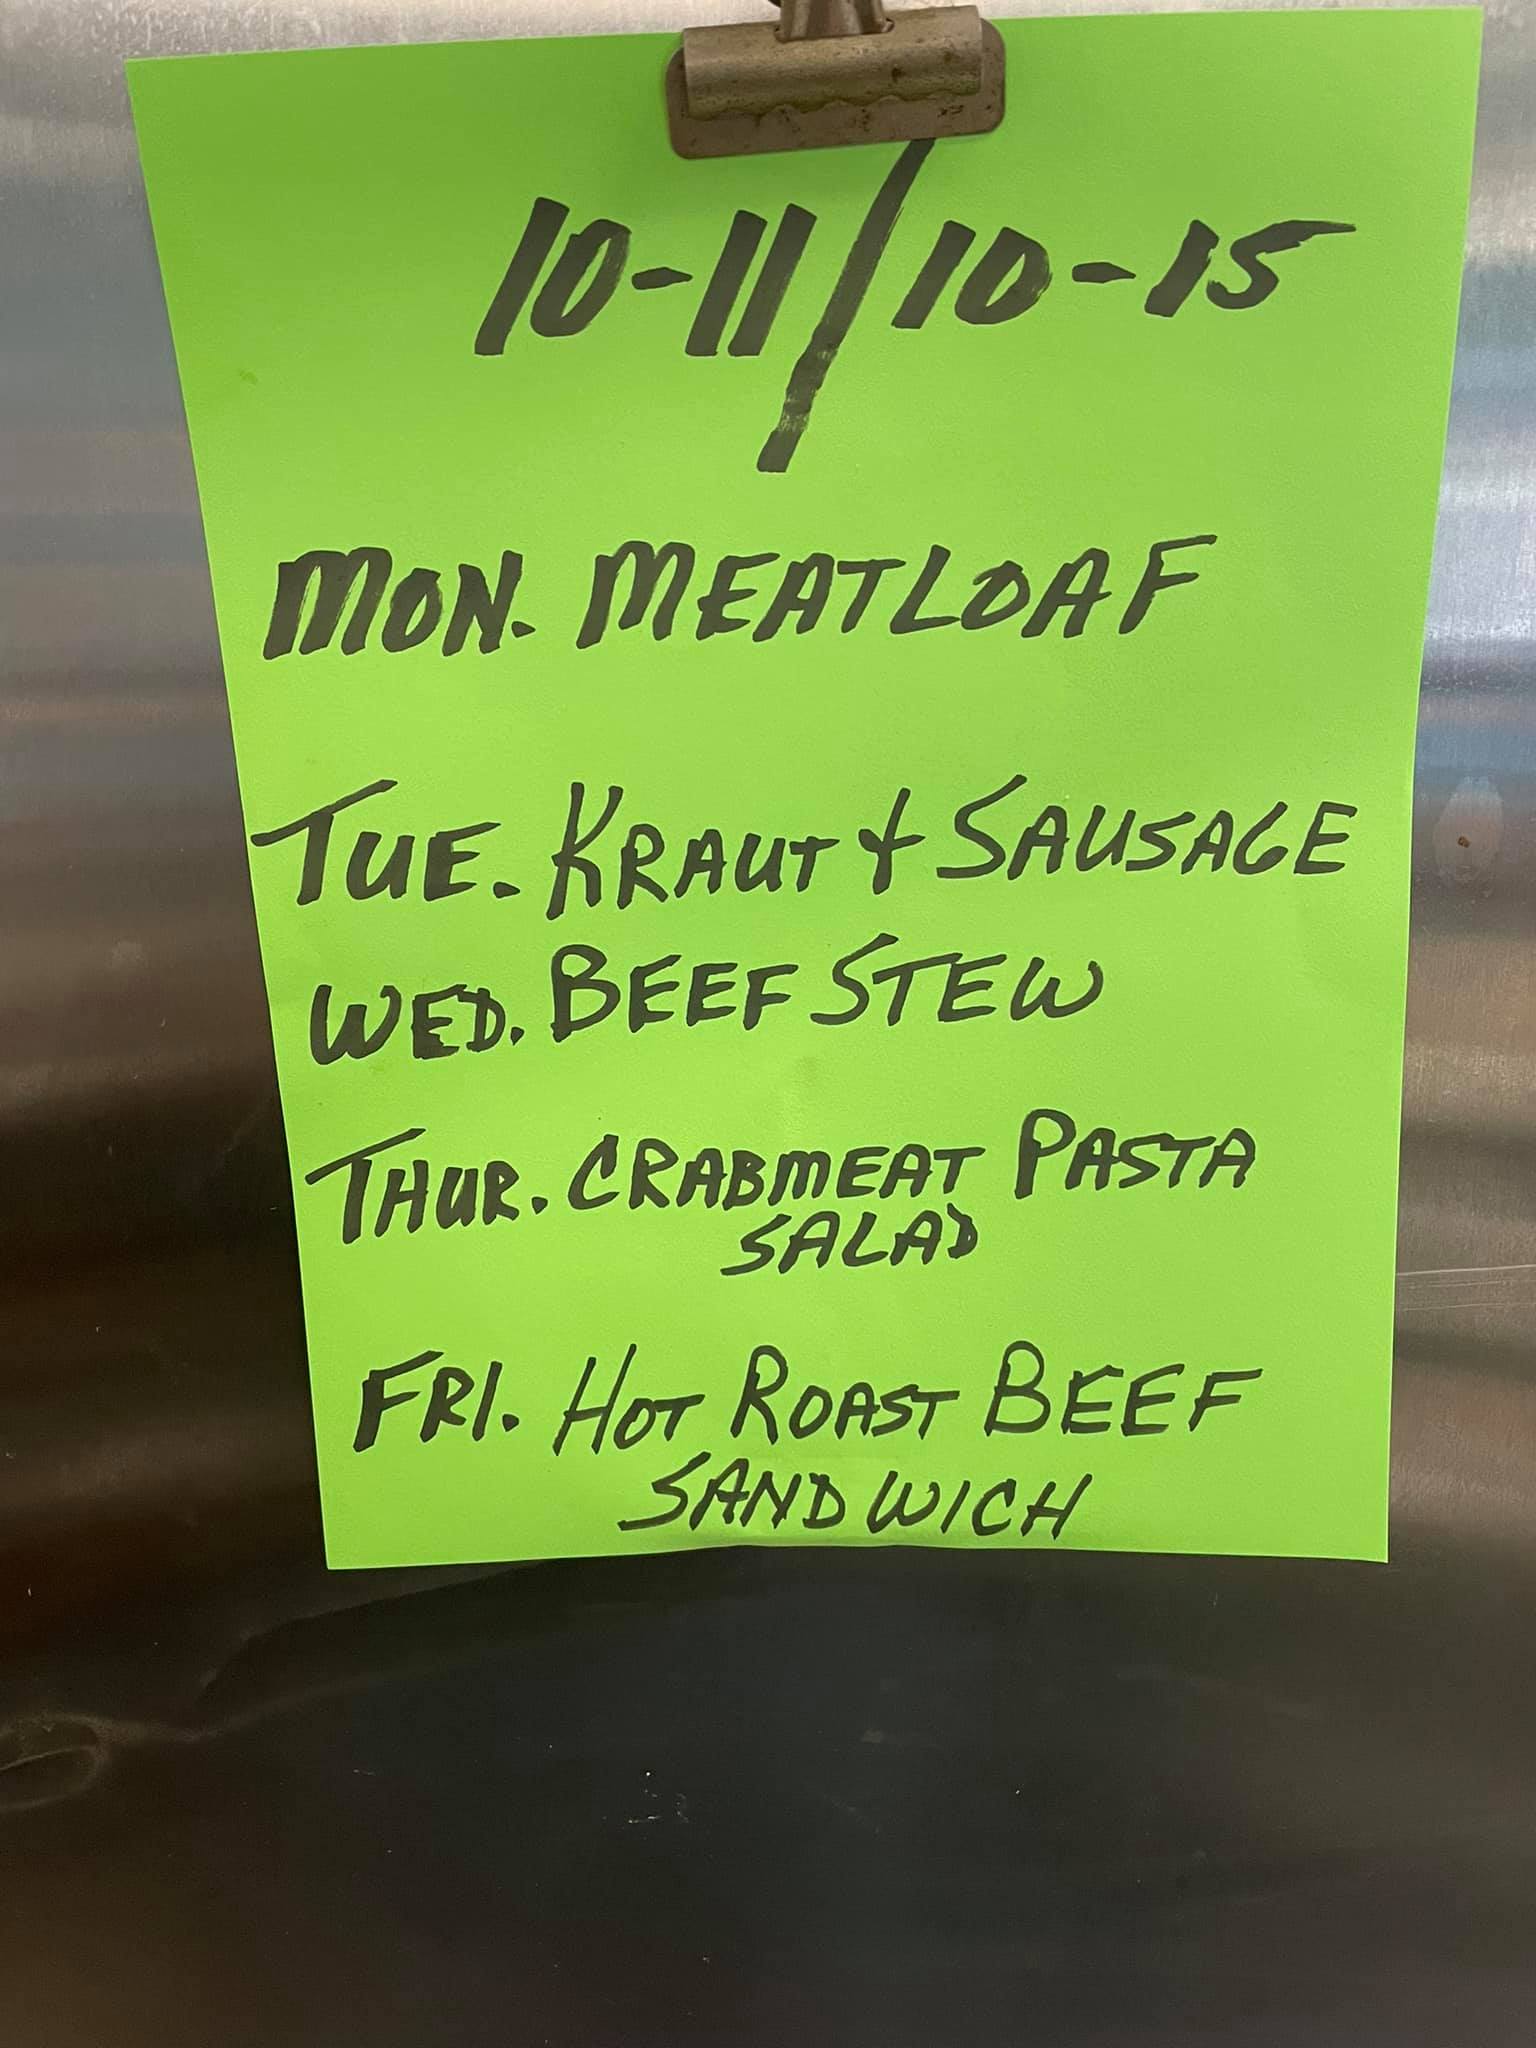 10-11/10-15
MON. MEATLOAF
TUE. KRAUT & SAUSAGE
WED. BEEF STEW
THUR. CRABMEAT PASTA
SALAD
FRI. HOT ROAST BEEF
SANDWICH